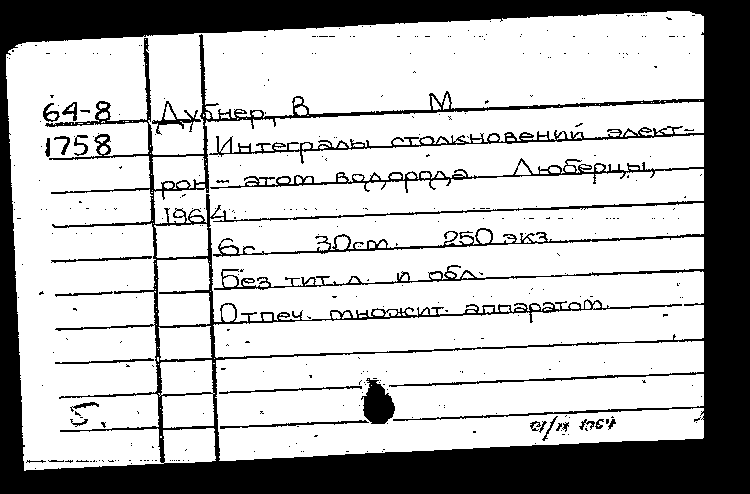 64-8 Дубнер, В М.
1758 Интегралы столкновений элект-
рон - атом водорода. Люберцы,
1964.
6с. 30см. 250 экз.
Без тит. л. и обл.
Отпеч. множит. аппаратом.
5.
1964